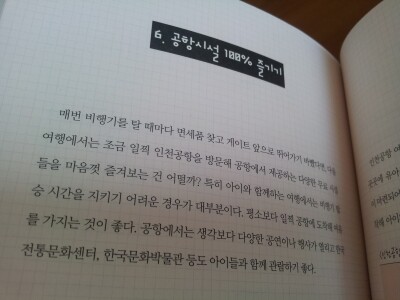 6. 공항시설 100% 즐기기
매번 비행기를 탈 때마다 면세품 찾고 게이트 앞으로 뛰어가기 바빴다면, 이번
여행에서는 조금 일찍 인천공항을 방문해 공항에서 제공하는 다양한 무료
들을 마음껏 즐겨보는 건 어떨까? 특히 아이와 함께하는 여행에서는 비행기 탑
승 시간을 지키기 어려운 경우가 대부분이다. 평소보다 일찍 공항에 도착해
를 가지는 것이 좋다. 공항에서는 생각보다 다양한 공연이나 행사가 열리고
전통문화센터, 한국문화박물관 등도 아이들과 함께 관람하기 좋다.
인천공항